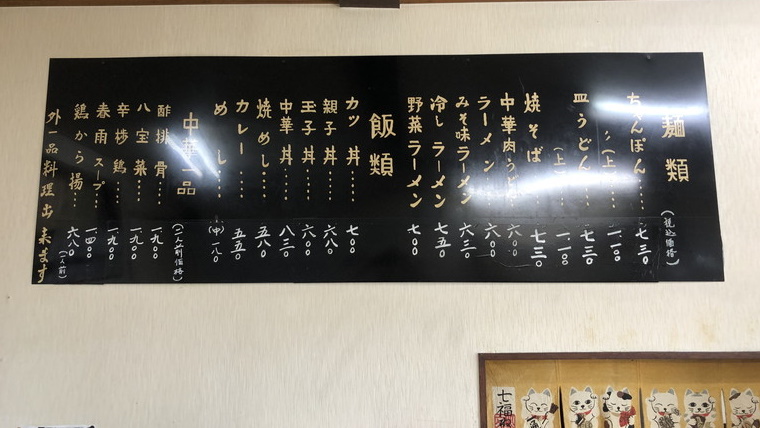 麺類
(税込価格)
ちゃんぽん……七三〇
〃(上)…一一〇〇
皿うどん……七三〇
(上)…一一〇〇
焼そば…七三〇
中華肉うどん 六〇〇
ラーメン…六〇〇
みそ味ラーメン 六三〇
冷しラーメン 七五〇
野菜ラーメン 七〇〇
飯類
カツ丼……七〇〇
親子丼……六八〇
玉子丼……六〇〇
中華丼……八三〇
焼めし……五八〇
カレー……五五〇
めし……(中)一八〇
中華一品
(二人前価格)
酢排骨……一九〇〇
八宝菜……一九〇〇
辛椒鶏……一九〇〇
春雨スープ…一四〇〇
鶏から揚…(一人前)六八〇
外一品料理出来ます
七福